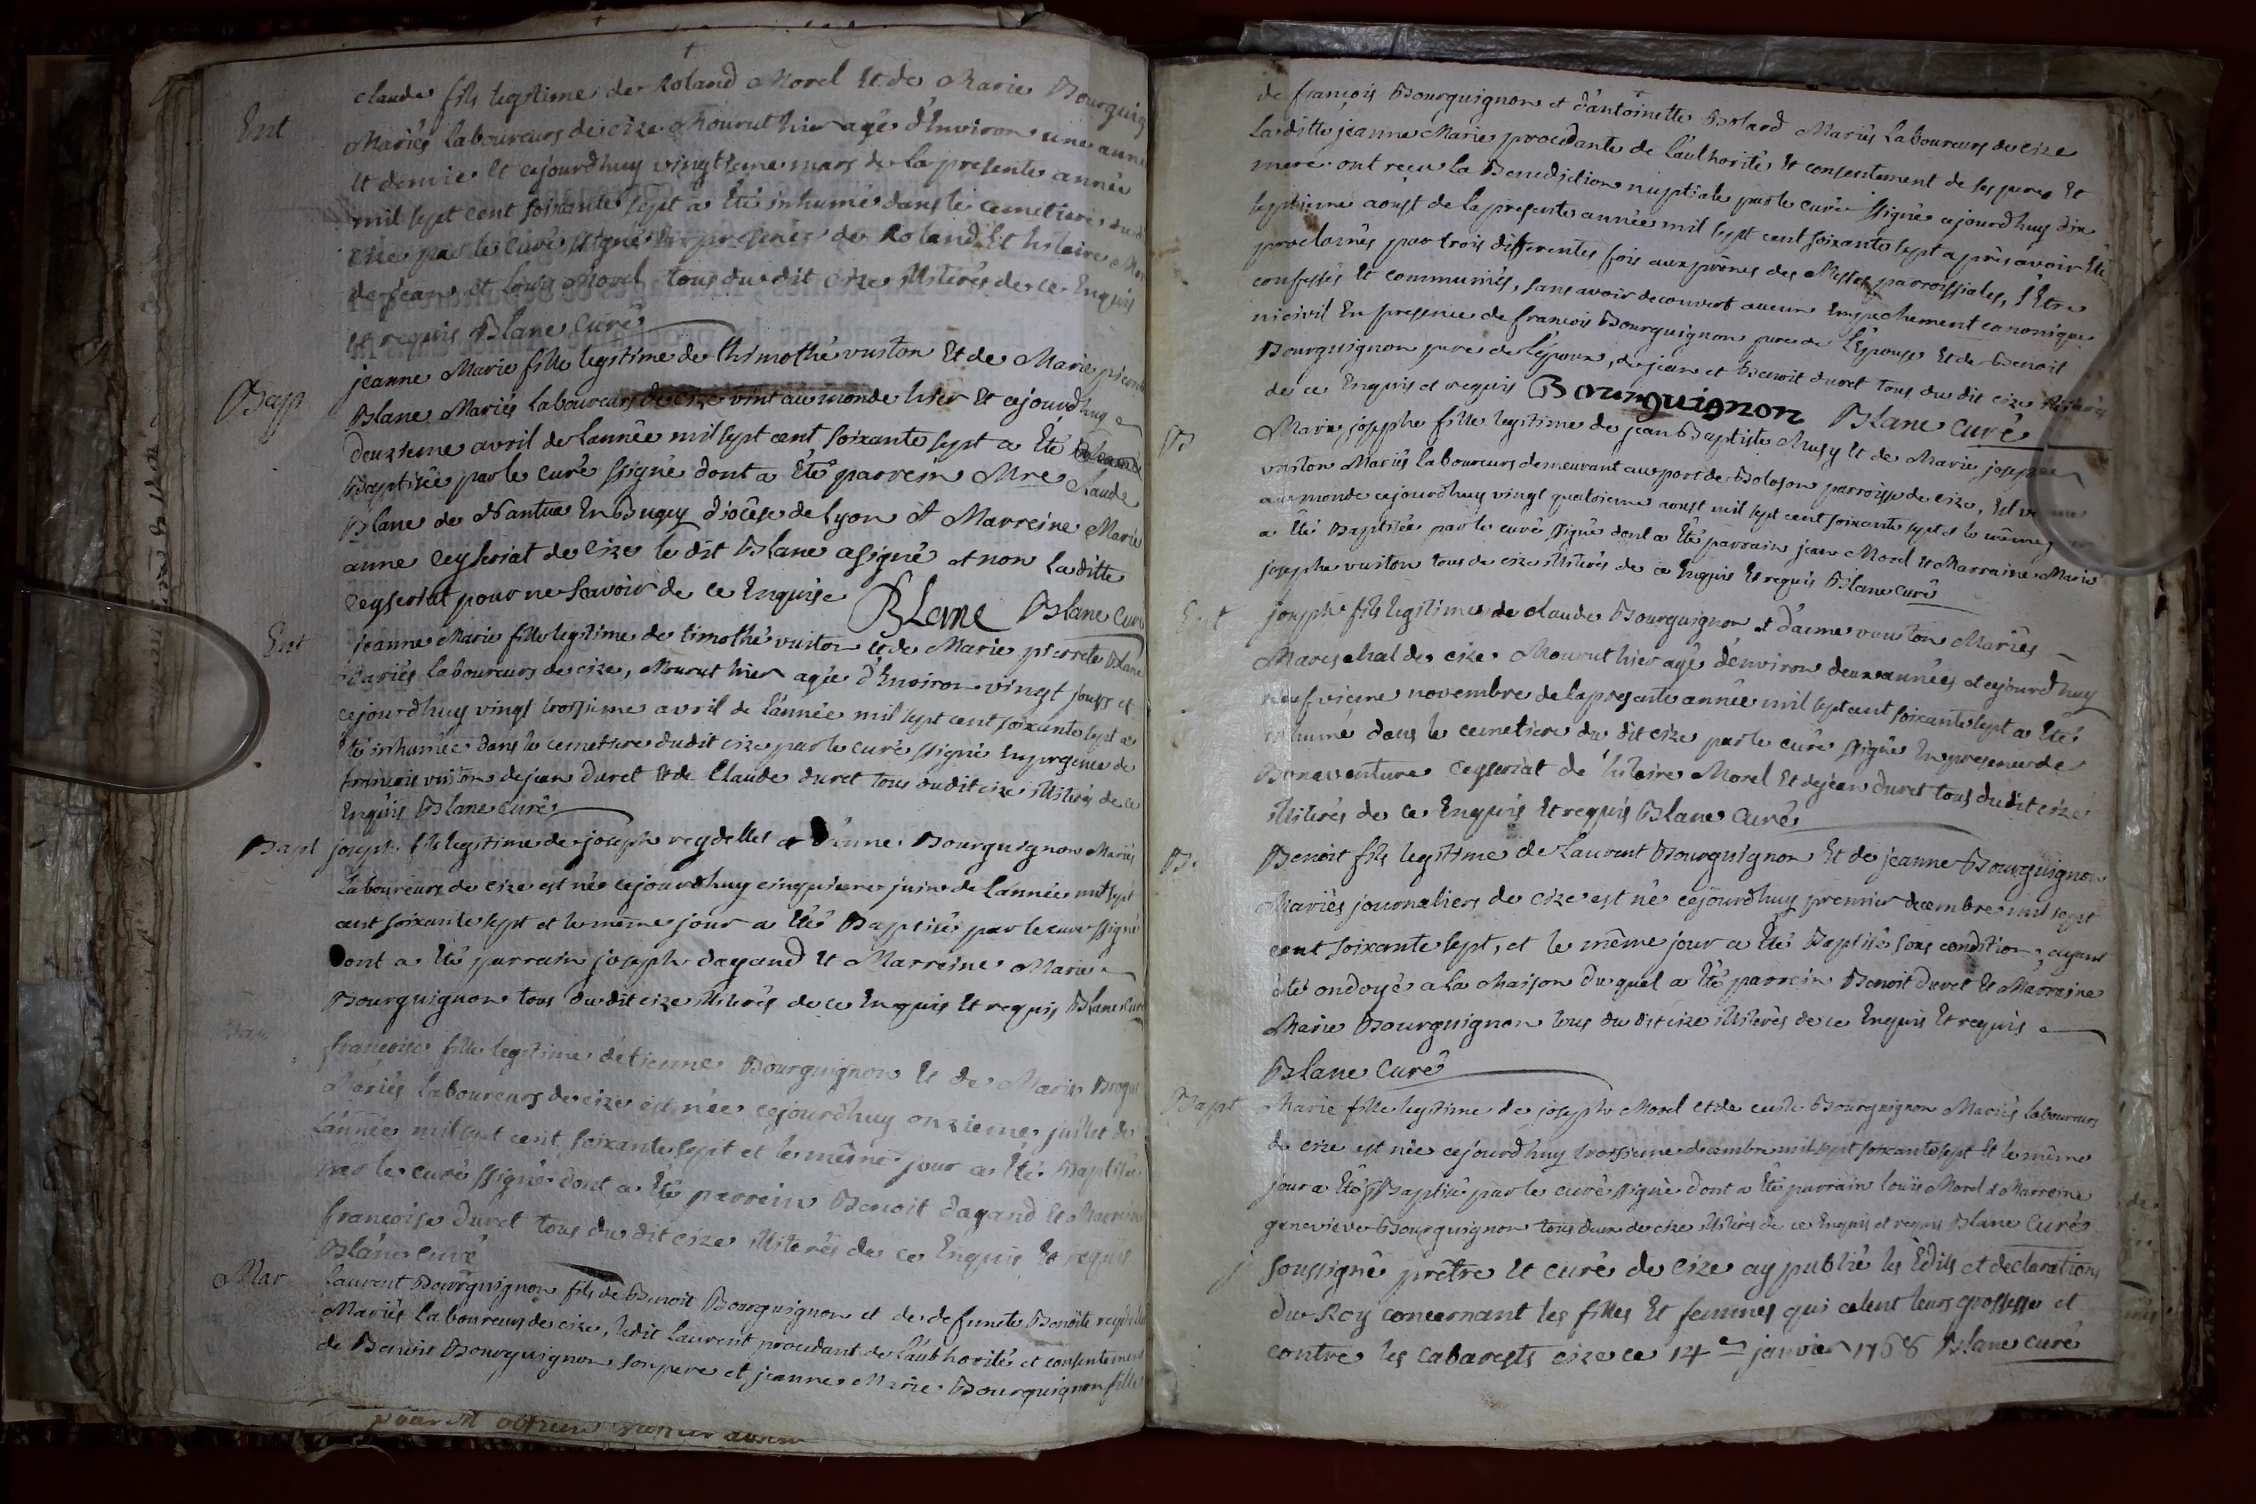 claude fils legitime de Roland Morel Et de Marie Bourguig
Ent
Mariés laboureurs de cize Mourut hier agé d'Environ une anne
Et demie Et cejourdhuy vingtieme mars de la presente année
mil sept cent soixante sept a Eté inhumé dans le cemetiere
cize par le curé ssigné En presence de Roland Et hilaire Mor
de jean et louis Morel tous du dit cize illiterés de ce Enquis
Et requis Blanc Curé
jeanne Marie fille legitime de thimothé vuiton Et de Marie
Bapt
Blanc Mariés Laboureurs de cize vint au monde hier Et cejourdhuy
deuxieme avril de lannée mil sept cent soixante sept a Eté
Baptisée par le curé ssigné dont a Eté parrein Mre claude
Blanc de Nantua En Bugey diocêse de Lyon Et Marreine Marie
anne Ceyseriat de Cize le dit Blanc a signé et non La ditte
Ceyseriat pour ne sçavoir de ce Enquise Blanc Blanc Curé
Ent
jeanne Marie fille legitime de timothé vuiton et de Marie pierrete Blanc
Mariés laboureurs de cize, Mourut hier agée d'Environ vingt jours et
cejourdhuy vingt troisieme avril de lannée mil sept cent soixante sept a
Eté inhumée dans le cemetiere dudit cize par le curé ssigné En presence de
francois vuiton de jean duret Et de Claude duret tous dudit cize illiterés de ce
Enquis Blanc curé
Bapt
joseph fils legitime de joseph reydellet et d'anne Bourguignon Mariés
Laboureurs de cize est né cejourdhuy cinquieme juin de lannée mil sept
cent soixante sept et le même jour a Eté Baptisé par le curé ssigné
dont a Eté parrain joseph dagand Et Marreine Marie
Bourguignon tous du dit cize illiterés de ce Enquis Et requis Blanc Curé
francoise fille legitime d'etienne Bourguignon Et de Marie
Mariés laboureurs de cize est née cejourdhuy onzieme juillet de
L'année mil sept cent soixante sept et le même jour a Eté Baptisée
par le curé ssigné dont a Eté parrein Benoit dagand Et Marreine
francoise duret tous du dit cize illiterés de ce Enquis Et requis
Blanc curé
Mar
Laurent Bourguignon fils de Benoit Bourguignon et de defunte Benoite
Mariés Laboureurs de cize, ledit Laurent procedant de l'authorité et consentement
de Benoit Bourguignon son pere et jeanne Marie Bourguignon fille
de françois Bourguignon et d'antoinette Brolard Mariés Laboureurs de cize
La ditte jeanne Marie procedante de l'authorité Et consentement de ses peres Et
mere ont recu la Benediction nuptiale par le curé ssigné cejourdhuy dix
septieme aoust de la presente année mil sept cent soixante sept apres avoir Eté
proclamés par trois differentes fois aux prônes des Messes parroissiales, s'Etre
confessés Et communiés, sans avoir decouvert aucun Empechement canonique
ni civil En presence de francois Bourguignon pere de l'Epouse Et de Benoit
Bourguignon pere de l'Epoux, de jean et Benoit duret tous du dit cize illiterés
de ce Enquis et requis Bourguignon Blanc Curé
B
Marie josephe fille legitime de jean Baptiste Musy Et de Marie josephe
vuiton Mariés laboureurs demeurant au port de Boloson parroisse de cize, Est ve
au monde cejourdhuy vingt quatrieme aoust mil sept cent soixante sept et le même
a Eté Baptisée par le curé ssigné dont a Eté parrain jean Morel et Marraine Marie
josephe vuiton tous de cize illiterés de ce Enquis Et requis Blanc Curé
Ent
joseph fils legitime de claude Bourguignon et d'anne vuiton Mariés
Mareschal de cize Mourut hier agé d'environ deux années et cejourdhuy
neufvieme novembre de la presente année mil sept cent soixante sept a Eté
inhumé dans le cemetiere du dit cize par le curé ssigné En presence de
Bonaventure Ceyseriat de hilaire Morel Et de jean duret tous dudit cize
illiterés de ce Enquis Et requis Blanc Curé
B.
Benoit fils legitime de Laurent Bourguignon Et de jeanne Bourguignon
Mariés journaliers de cize est né cejourdhuy premier decembre mil sept
cent soixante sept, et le même jour a Eté Baptisé sous condition, ayant
été ondoyé a la Maison duquel a Eté parrein Benoit duret Et Marraine
Marie Bourguignon tous du dit cize illiterés de ce Enquis Et requis
Blanc Curé
Bapt
Marie fille legitime de joseph Morel et de Bourguignon Mariés laboureurs
de cize est née cejourdhuy troisieme decembre mil sept soixante sept Et le même
jour a Eté Baptisé par le curé ssigné dont a Eté parrain louis Morel et Marreine
genevieve Bourguignon tous deux de cize illiterés de ce Enquis et requis Blanc Curé
j soussigné prêtre Et curé de Cize ay publié les Edits et declarations
du Roy concernant les filles Et femmes qui celent leurs grossesse et
contre les cabarests cize ce 14e janvier 1768 Blanc curé